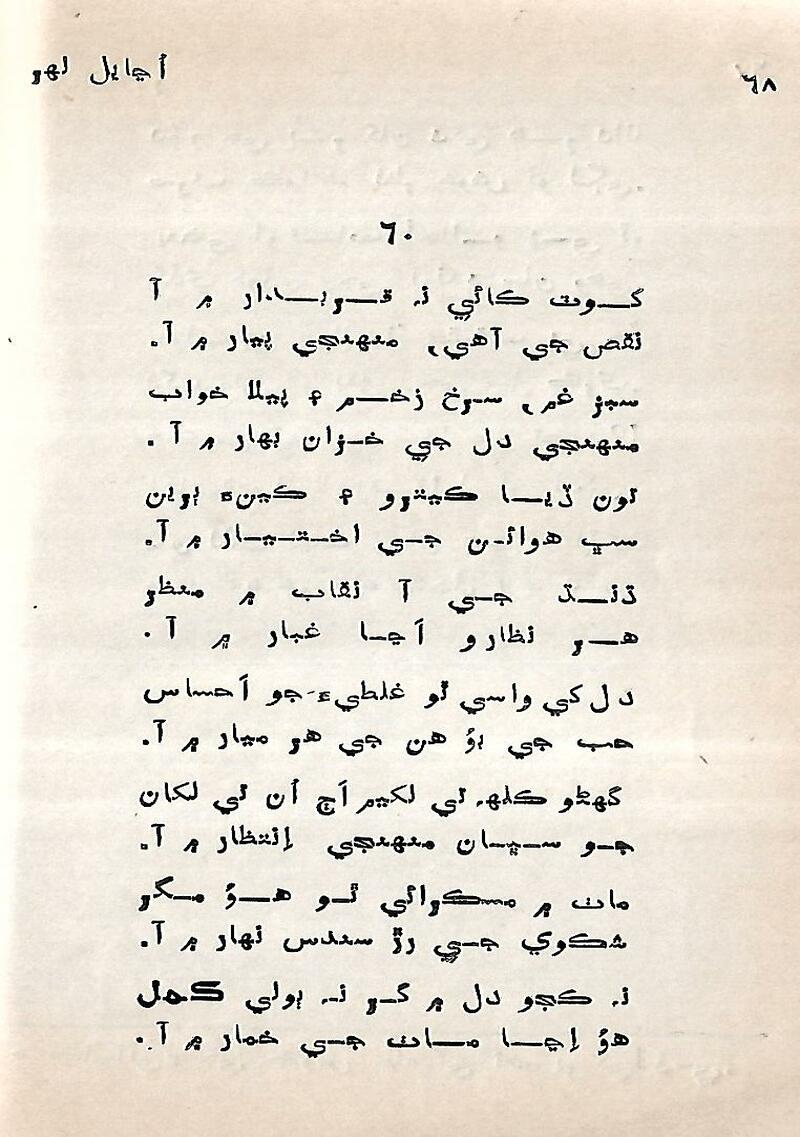 ٦٨
اڃايل لهر
٦٠
کوٽ ڪائي نه قربدار ۾ آ
نقص جي آهي، منهنجي پيار ۾ آ.
سبز غم، سرخ زخم ۽ پيلا خواب
منهنجي دل جي خزان بهار ۾ آ.
تون ڏيا ڪيترو ۽ ڪيئن ٻرين
سڀ هوائن جي اختيار ۾ آ.
ڌنڌ جي آ نقاب ۾ منظر
هر نظارو اڃا غبار ۾ آ.
دل کي واسي ٿو غلطيءَ جو احساس
حب جي بوُ هن جي هر ميار ۾ آ.
گهڻو ڪلهه ئي لکيم اڄ اُن ئي لکان
جو سڀان منهنجي اِنتظار ۾ آ.
ماٺ ۾ مسڪرائي ٿو هوُ مگر
شڪوي جي رڙ سندس نهار ۾ آ.
نه ڪڇو دل ۾ گر نه ٻولي کمل
هوُ اِڃا ماٺ جي خمار ۾ آ.